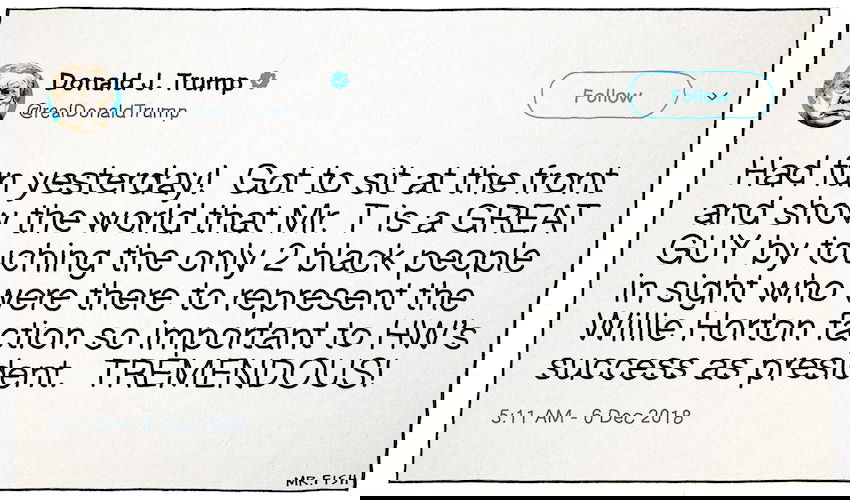 Donald J. Trump
@realDonaldTrump
Follow Follow
Had fun yesterday! Got to sit at the front
and show the world that Mr. T is a GREAT
GUY by touching the only 2 black people
in sight who were there to represent the
Willie Horton faction so important to HW's
success as president. TREMENDOUS!
5:11 AM - 6 Dec 2018
MR. FISH